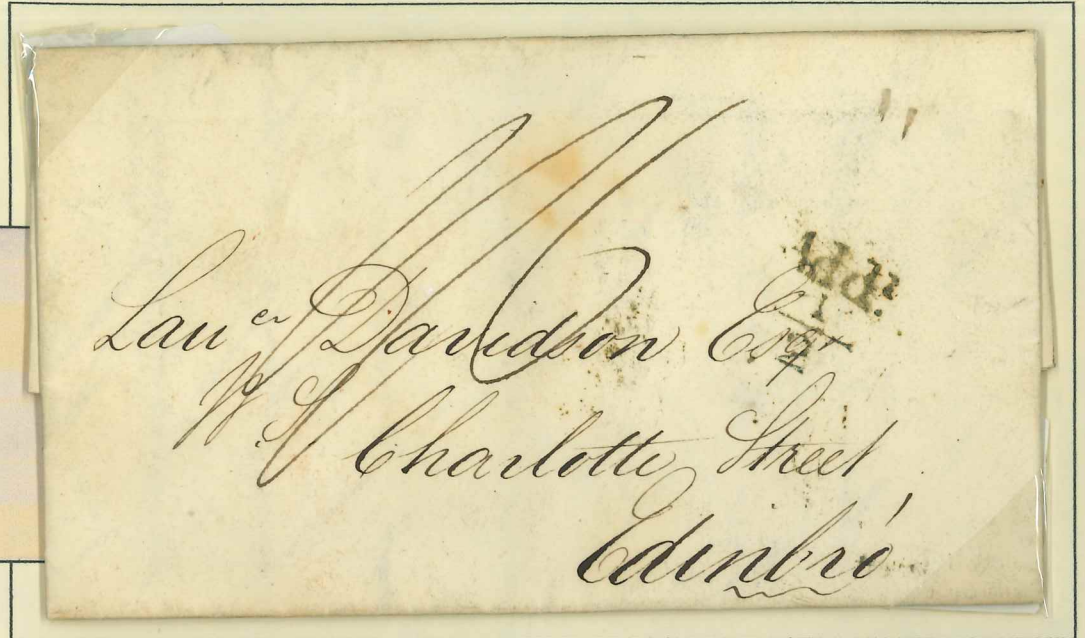 Add.
1
2
Lau^er Davidson Esqr
W.S.
Charlotte Street
Edinbró